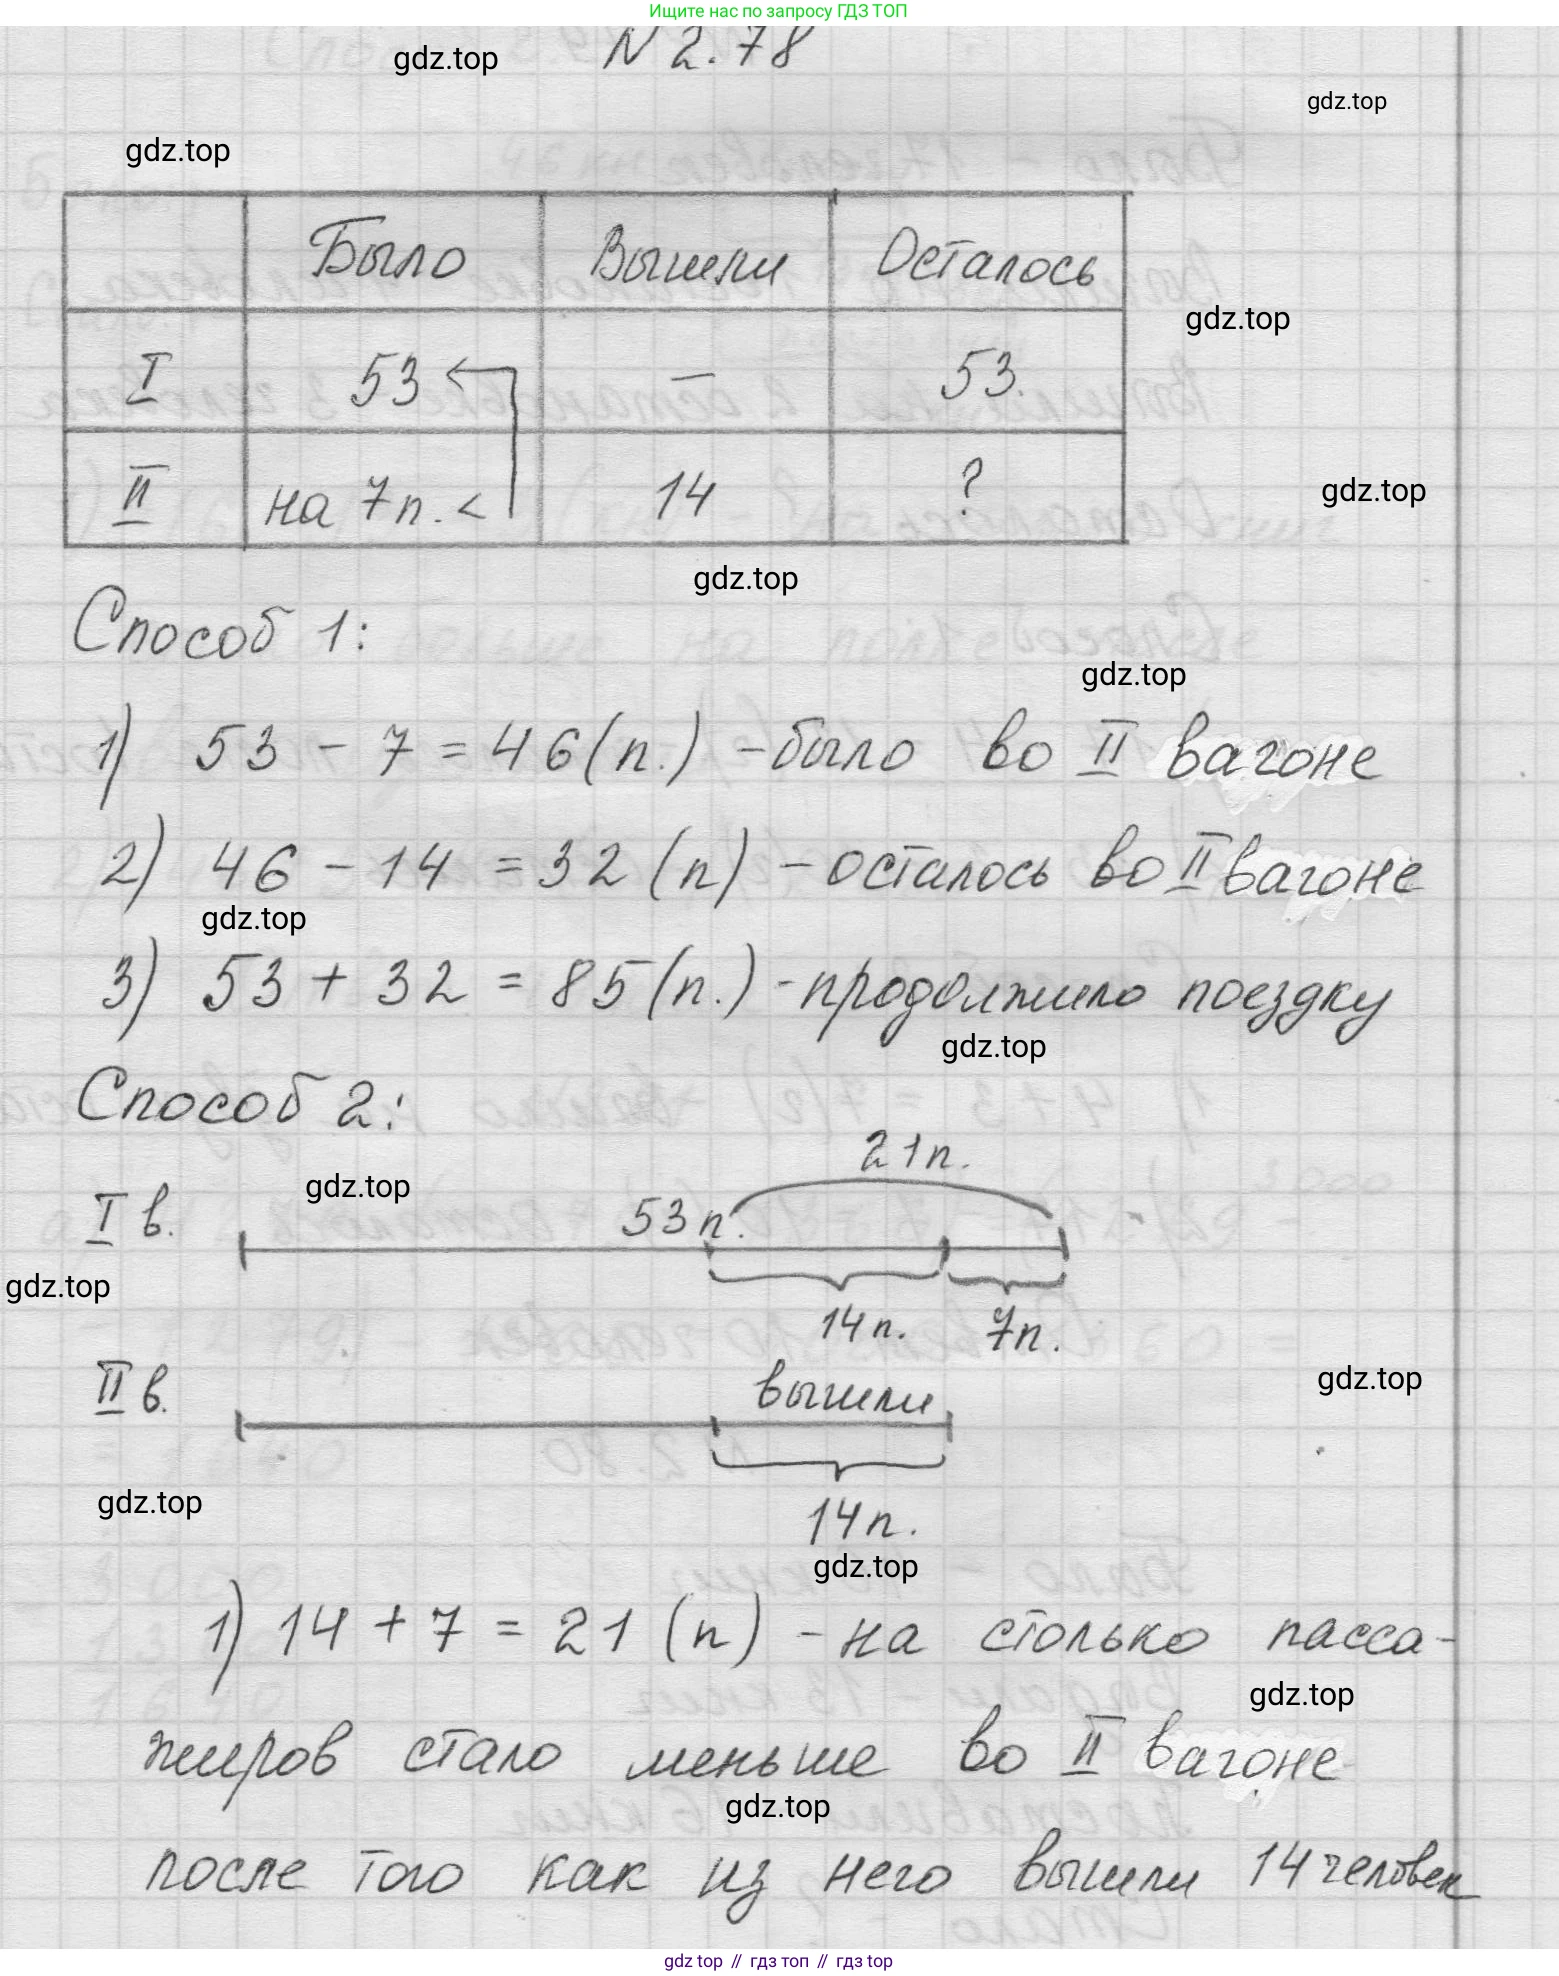 Ищите нас по запросу ГДЗ ТОП
N 2.78
gdz.top
gdz.top
gdz.top
Было Вышли Осталось
gdz.top
I 53 — 53.
II на 7п. < 14 ?
gdz.top
gdz.top
Способ 1:
gdz.top
1) 53 - 7 = 46 (п.) - было во II вагоне
2) 46 - 14 = 32 (п) - осталось во II вагоне
gdz.top
3) 53 + 32 = 85 (п.) - продолжило поездку
gdz.top
Способ 2:
21п.
gdz.top
I в. 53 п.
gdz.top
14п. 7п.
gdz.top
II в. вышли
gdz.top
14п.
gdz.top
1) 14 + 7 = 21 (п) - на столько пасса-
gdz.top
жиров стало меньше во II вагоне
gdz.top
после того как из него вышли 14 человек
gdz top // гдз топ // гдз top